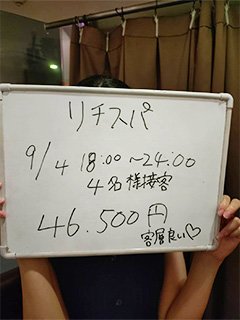 リチスパ
9/4 18:00〜24:00
4名様接客
46.500円
客層良い♡